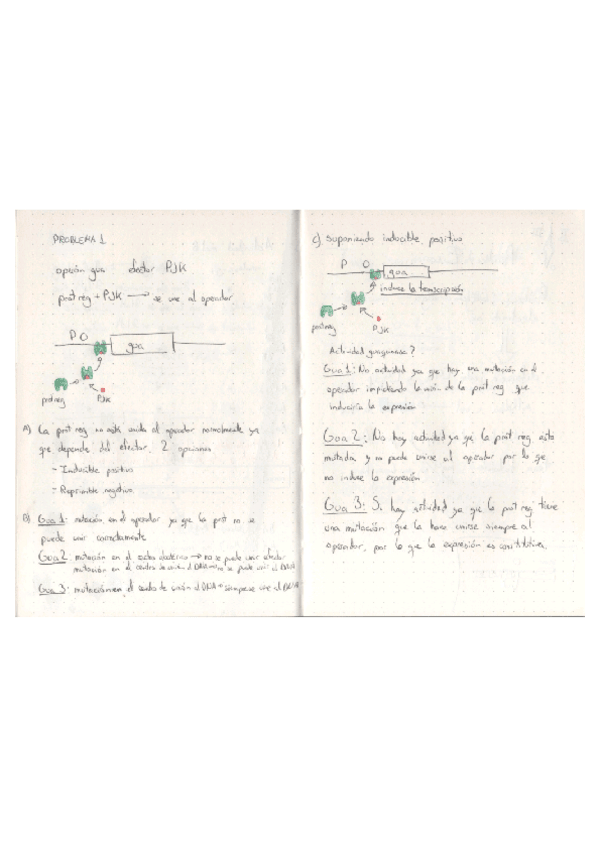 PROBLEMA 1
operón gua efector PJK
prot reg + PJK → se une al operador
P O
gua
prot reg PJK
A) La prot reg no está unida al operador normalmente ya
que depende del efector. 2 opciones
- Inducible positivo
- Reprimible negativo
B) Gua 1: mutación en el operador ya que la prot no se
puede unir correctamente
Gua 2 mutación en el centro alostérico → no se puede unir efector
mutación en el centro de unión al DNA no se puede unir al DNA
Gua 3: mutación en el centro de unión al DNA siempre se une al DNA
c) suponiendo inducible positivo
P O
gua
induce la transcripción
prot reg PJK
Actividad guaguanasa?
Gua 1: No actividad ya que hay una mutación en el
operador impidiendo la unión de la prot reg que
induciría la expresión
Gua 2: No hay actividad ya que la prot reg está
mutada, y no puede unirse al operador por lo que
no induce la expresión
Gua 3: Si hay actividad ya que la prot reg tiene
una mutación que la hace unirse siempre al
operador, por lo que la expresión es constitutiva.